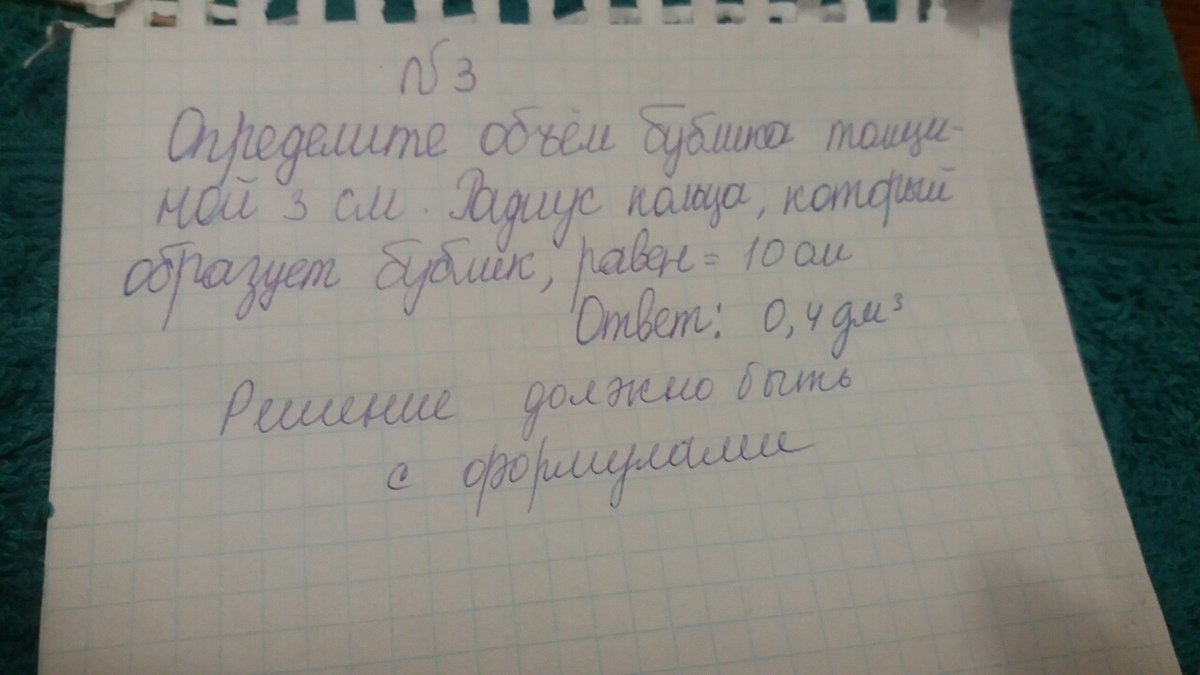 №3
Определите объём бублика толщи-
ной 3 см. Радиус кольца, который
образует бублик, равен = 10 см
Ответ: 0,4 дм³
Решение должно быть
с формулами